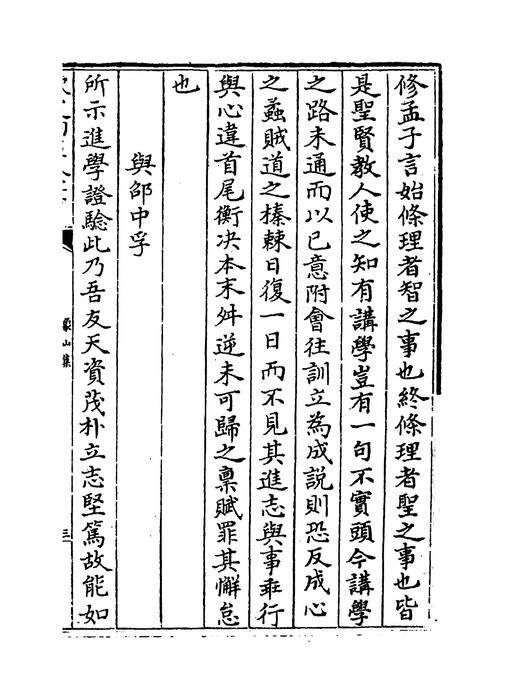 修孟子言始條理者智之事也終條理者聖之事也皆
是聖賢教人使之知有講學豈有一句不實頭今講學
之路未通而以己意附會往訓立為成說則恐反成心
之蟊賊道之榛棘日復一日而不見其進志與事乖行
與心違首尾衡决本末舛逆未可歸之稟賦罪其懈怠
也
與邵中孚
所示進學證驗此乃吾友天資茂朴立志堅篤故能如
象山集
三